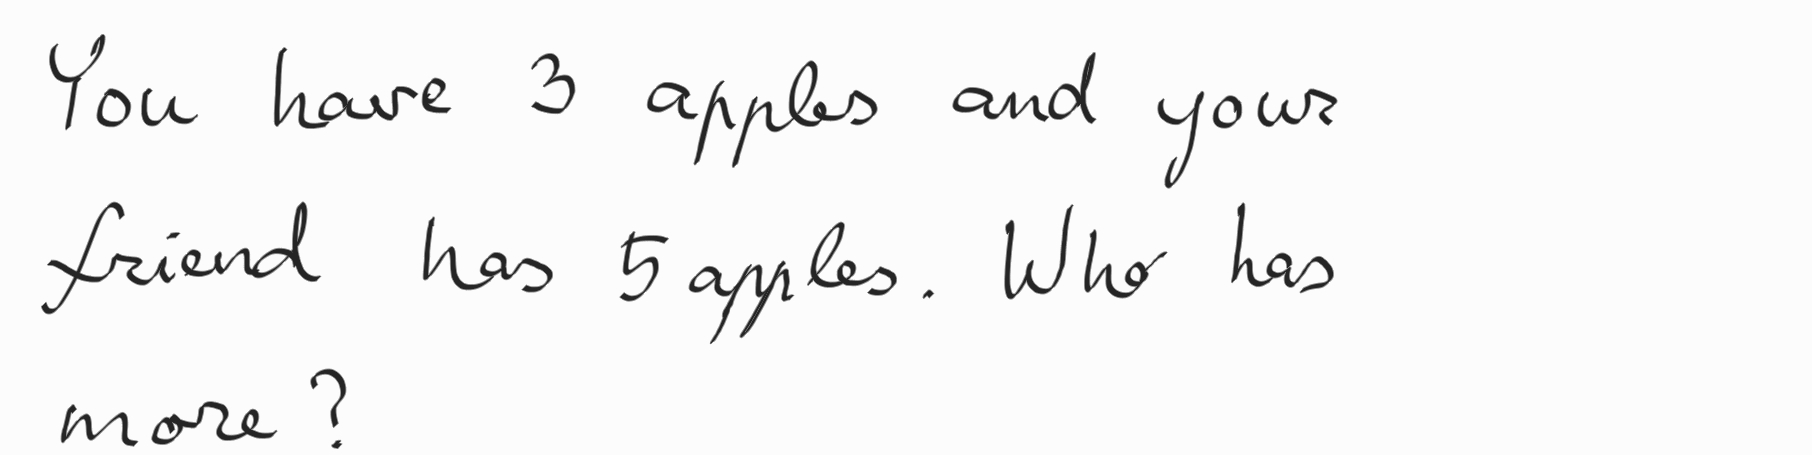 You have 3 apples and your
friend has 5 apples. Who has
more?